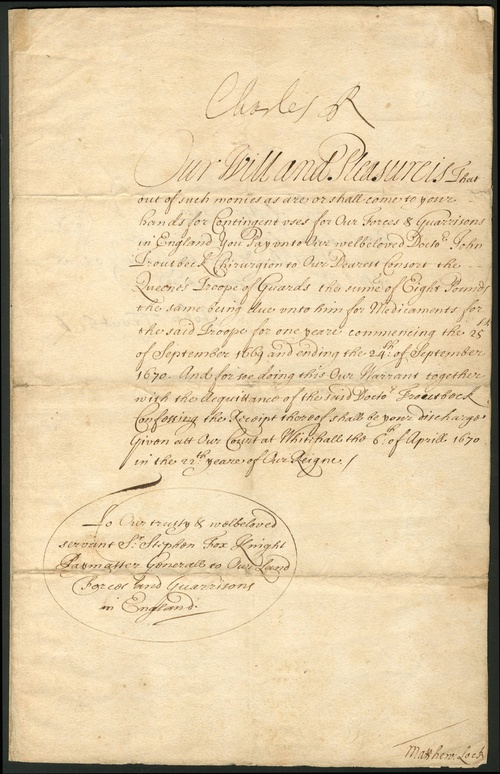 Charles R
Our Will and Pleasure is That
out of such monies as are or shall come to your
hands for Contingent uses for Our Forces & Guarrisons
in England You Pay unto Our welbeloved Docto.r John
Troutbeck Chirurgion to Our Dearest Consort the
Queene's Troope of Guards the sume of Eight Pounds
the same being due unto him for Medicaments for
the said Troope for one yeare commencing the 25th
of September 1669 and ending the 24th of September
1670. And for soe doing this Our Warrant together
with the Acquittance of the said Docto.r Troutbeck
Confessing the Receipt thereof shall be your discharge
Given att Our Court at Whitehall the 6th of Aprill 1670
in the 22th yeare of Our Reigne /
To Our trusty & welbeloved
servant Sr. Stephen Fox Knight
Paymaster Generall to Our Land
Forces and Guarrisons
in England.
Mathew Lock